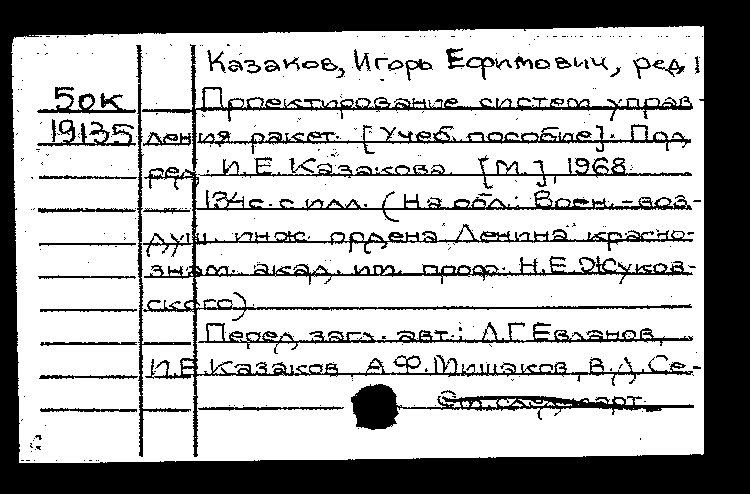 Казаков, Игорь Ефимович, ред.
50к Проектирование систем управ-
19135 ления ракет. [Учеб. пособие]. Под
ред. И.Е. Казакова. [М.], 1968.
134с. с илл. (На обл.: Воен.-воз-
душ. инж. ордена Ленина красно-
знам. акад. им. проф. Н.Е.Жуков-
ского)
Перед загл. авт.: Л.Г.Евланов,
И.Е.Казаков, А.Ф.Мишаков, В.Д.Се-
См. след. карт.